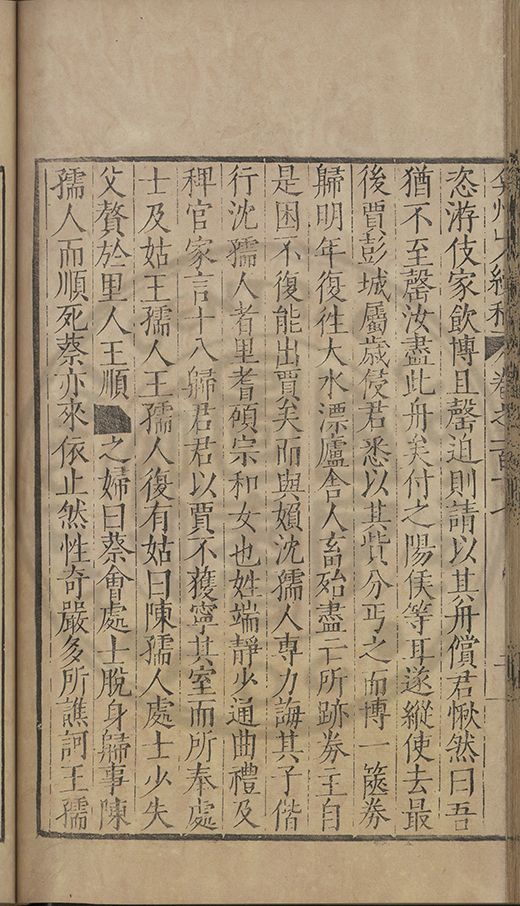 弇州山人續稿 卷之一百十七
恣游伎家飲博且罄迫則請以其舟償君愀然曰吾
猶不至罄汝盡此舟矣付之陽侯等耳遂縱使去最
後賈彭城屬歲侵君悉以其貲分丐之而博一篋券
歸明年復徃大水漂廬舍人畜殆盡亡所跡券王自
是困不復能出賈矣而與嬪沈孺人專力誨其子偕
行沈孺人者里耆碩宗和女也姓端靜少通曲禮及
稗官家言十八歸君君以賈不獲寧其室而所奉處
士及姑王孺人王孺人復有姑曰陳孺人處士少失
父贅於里人王順 之婦曰蔡會處士脫身歸事陳
孺人而順死蔡亦來依止然性奇嚴多所譙訶王孺